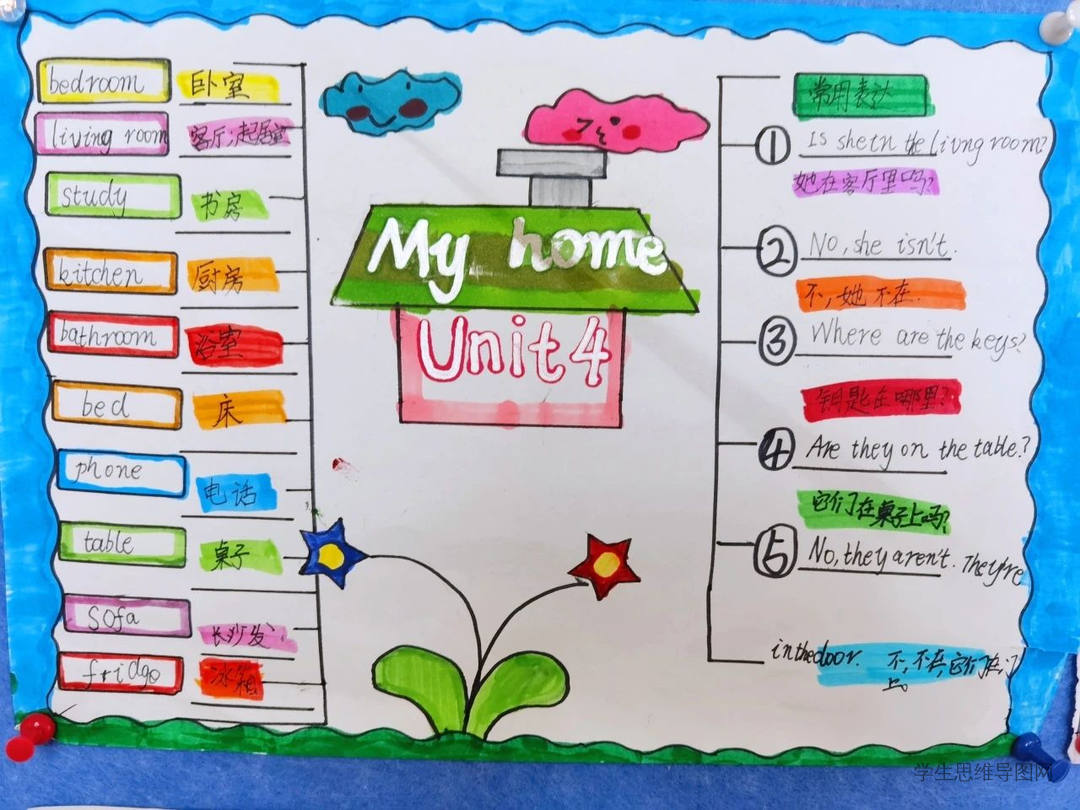 bedroom 卧室
living room 客厅;起居室
study 书房
kitchen 厨房
bathroom 浴室
bed 床
phone 电话
table 桌子
sofa 长沙发
fridge 冰箱
My home
Unit 4
常用表达
① Is she in the livng room?
她在客厅里吗?
② No, she isn't.
不,她不在.
③ Where are the keys?
钥匙在哪里?
④ Are they on the table.?
它们在桌子上吗?
⑤ No, they aren't. They're
in the door. 不,不在,它们在门
上
学生思维导图网